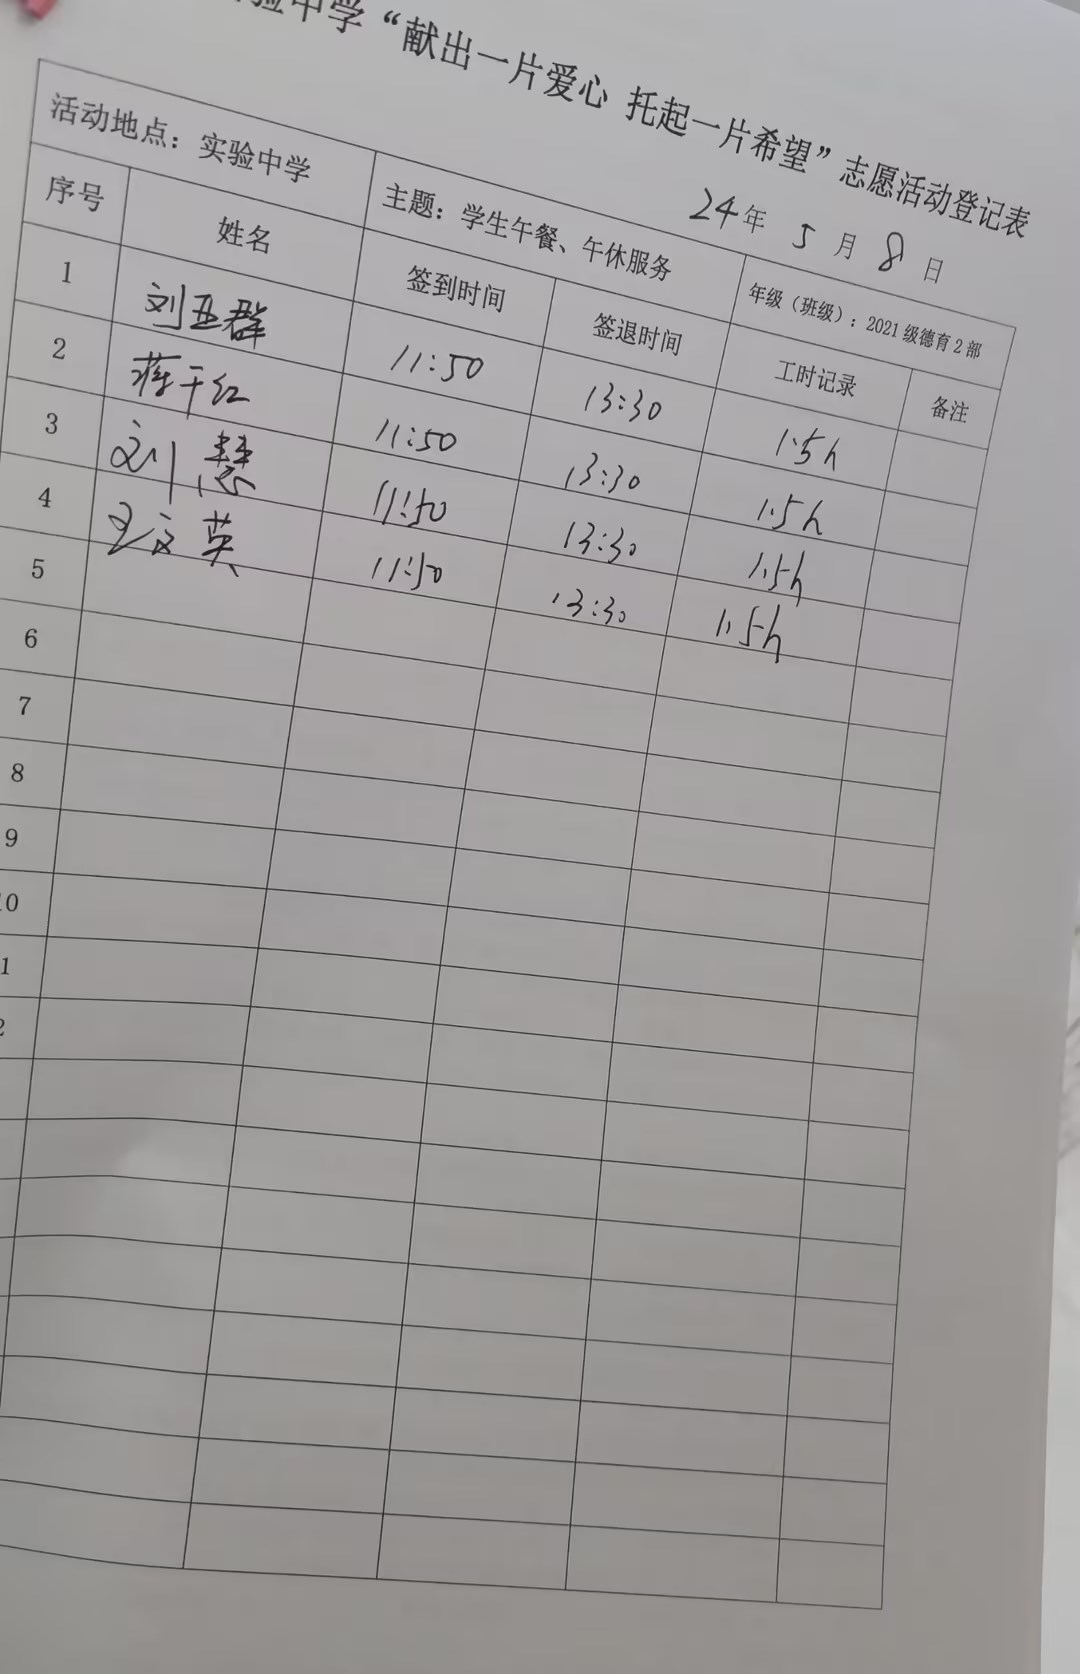 验中学“献出一片爱心 托起一片希望”志愿活动登记表
24年 5月 8日
活动地点：实验中学 主题：学生午餐、午休服务 年级（班级）：2021级德育2部
序号 姓名 签到时间 签退时间 工时记录 备注
1 刘亚群 11:50 13:30 1.5h
2 蒋于红 11:50 13:30 1.5h
3 刘慧 11:50 13:30 1.5h
4 王文英 11:50 13:30 1.5h
5
6
7
8
9
10
1
2